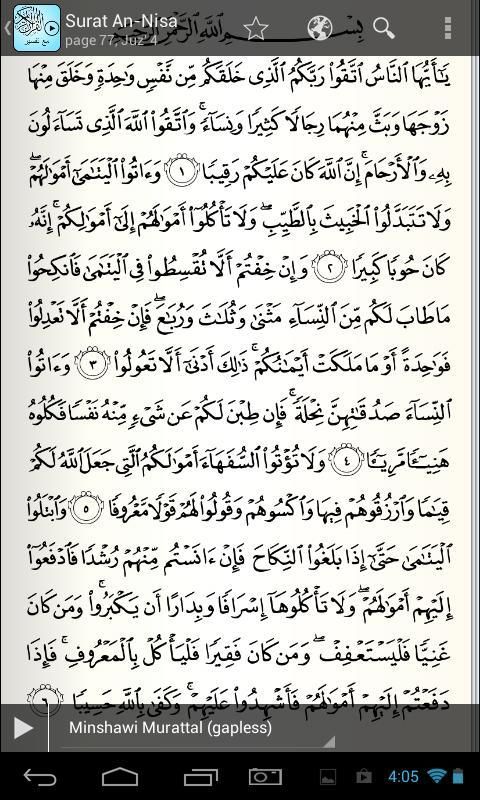 Surat An-Nisa
page 77, Juz' 4
بِسْمِ ٱللَّهِ ٱلرَّحْمَٰنِ ٱلرَّحِيمِ
يَٰٓأَيُّهَا ٱلنَّاسُ ٱتَّقُوا۟ رَبَّكُمُ ٱلَّذِى خَلَقَكُم مِّن نَّفْسٍ وَٰحِدَةٍ وَخَلَقَ مِنْهَا
زَوْجَهَا وَبَثَّ مِنْهُمَا رِجَالًا كَثِيرًا وَنِسَآءً ۚ وَٱتَّقُوا۟ ٱللَّهَ ٱلَّذِى تَسَآءَلُونَ
بِهِۦ وَٱلْأَرْحَامَ ۚ إِنَّ ٱللَّهَ كَانَ عَلَيْكُمْ رَقِيبًا ١ وَءَاتُوا۟ ٱلْيَتَٰمَىٰٓ أَمْوَٰلَهُمْ ۖ
وَلَا تَتَبَدَّلُوا۟ ٱلْخَبِيثَ بِٱلطَّيِّبِ ۖ وَلَا تَأْكُلُوٓا۟ أَمْوَٰلَهُمْ إِلَىٰٓ أَمْوَٰلِكُمْ ۚ إِنَّهُۥ
كَانَ حُوبًا كَبِيرًا ٢ وَإِنْ خِفْتُمْ أَلَّا تُقْسِطُوا۟ فِى ٱلْيَتَٰمَىٰ فَٱنكِحُوا۟
مَا طَابَ لَكُم مِّنَ ٱلنِّسَآءِ مَثْنَىٰ وَثُلَٰثَ وَرُبَٰعَ ۖ فَإِنْ خِفْتُمْ أَلَّا تَعْدِلُوا۟
فَوَٰحِدَةً أَوْ مَا مَلَكَتْ أَيْمَٰنُكُمْ ۚ ذَٰلِكَ أَدْنَىٰٓ أَلَّا تَعُولُوا۟ ٣ وَءَاتُوا۟
ٱلنِّسَآءَ صَدُقَٰتِهِنَّ نِحْلَةً ۚ فَإِن طِبْنَ لَكُمْ عَن شَىْءٍ مِّنْهُ نَفْسًا فَكُلُوهُ
هَنِيٓـًٔا مَّرِيٓـًٔا ٤ وَلَا تُؤْتُوا۟ ٱلسُّفَهَآءَ أَمْوَٰلَكُمُ ٱلَّتِى جَعَلَ ٱللَّهُ لَكُمْ
قِيَٰمًا وَٱرْزُقُوهُمْ فِيهَا وَٱكْسُوهُمْ وَقُولُوا۟ لَهُمْ قَوْلًا مَّعْرُوفًا ٥ وَٱبْتَلُوا۟
ٱلْيَتَٰمَىٰ حَتَّىٰٓ إِذَا بَلَغُوا۟ ٱلنِّكَاحَ فَإِنْ ءَانَسْتُم مِّنْهُمْ رُشْدًا فَٱدْفَعُوٓا۟
إِلَيْهِمْ أَمْوَٰلَهُمْ ۖ وَلَا تَأْكُلُوهَآ إِسْرَافًا وَبِدَارًا أَن يَكْبَرُوا۟ ۚ وَمَن كَانَ
غَنِيًّا فَلْيَسْتَعْفِفْ ۖ وَمَن كَانَ فَقِيرًا فَلْيَأْكُلْ بِٱلْمَعْرُوفِ ۚ فَإِذَا
دَفَعْتُمْ إِلَيْهِمْ أَمْوَٰلَهُمْ فَأَشْهِدُوا۟ عَلَيْهِمْ ۚ وَكَفَىٰ بِٱللَّهِ حَسِيبًا ٦
Minshawi Murattal (gapless)
4:05